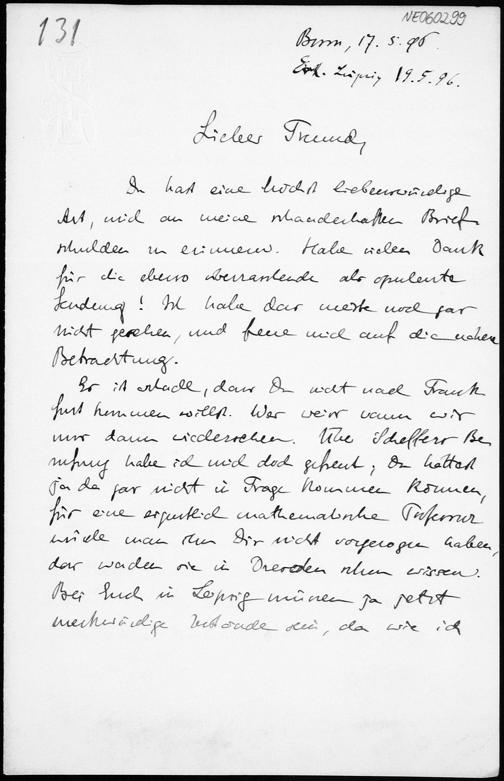 131
NE060299
Bonn, 17. 5. 96.
Erh. Leipzig 19.5.96.
Lieber Freund,
Du hast eine höchst liebenswürdige
Art, mich an meine schauderhaften Brief-
schulden zu erinnern. Habe vielen Dank
für die ebenso überraschende als opulente
Sendung! Ich habe das meiste noch gar
nicht gesehen, und freue mich auf die nähere
Betrachtung.
Es ist schade, dass Du nicht nach Frank
furt kommen willst. Wer weiss wann wir
uns dann wiedersehen. Über Scheffers Be
rufung habe ich mich doch gefreut; Du hättest
ja da gar nicht in Frage kommen können,
für eine eigentlich mathematische Professur
würde man ihn Dir nicht vorgezogen haben,
das werden sie in Dresden schon wissen.
Bei Euch in Leipzig müssen ja jetzt
merkwürdige Zustände sein, da wie ich